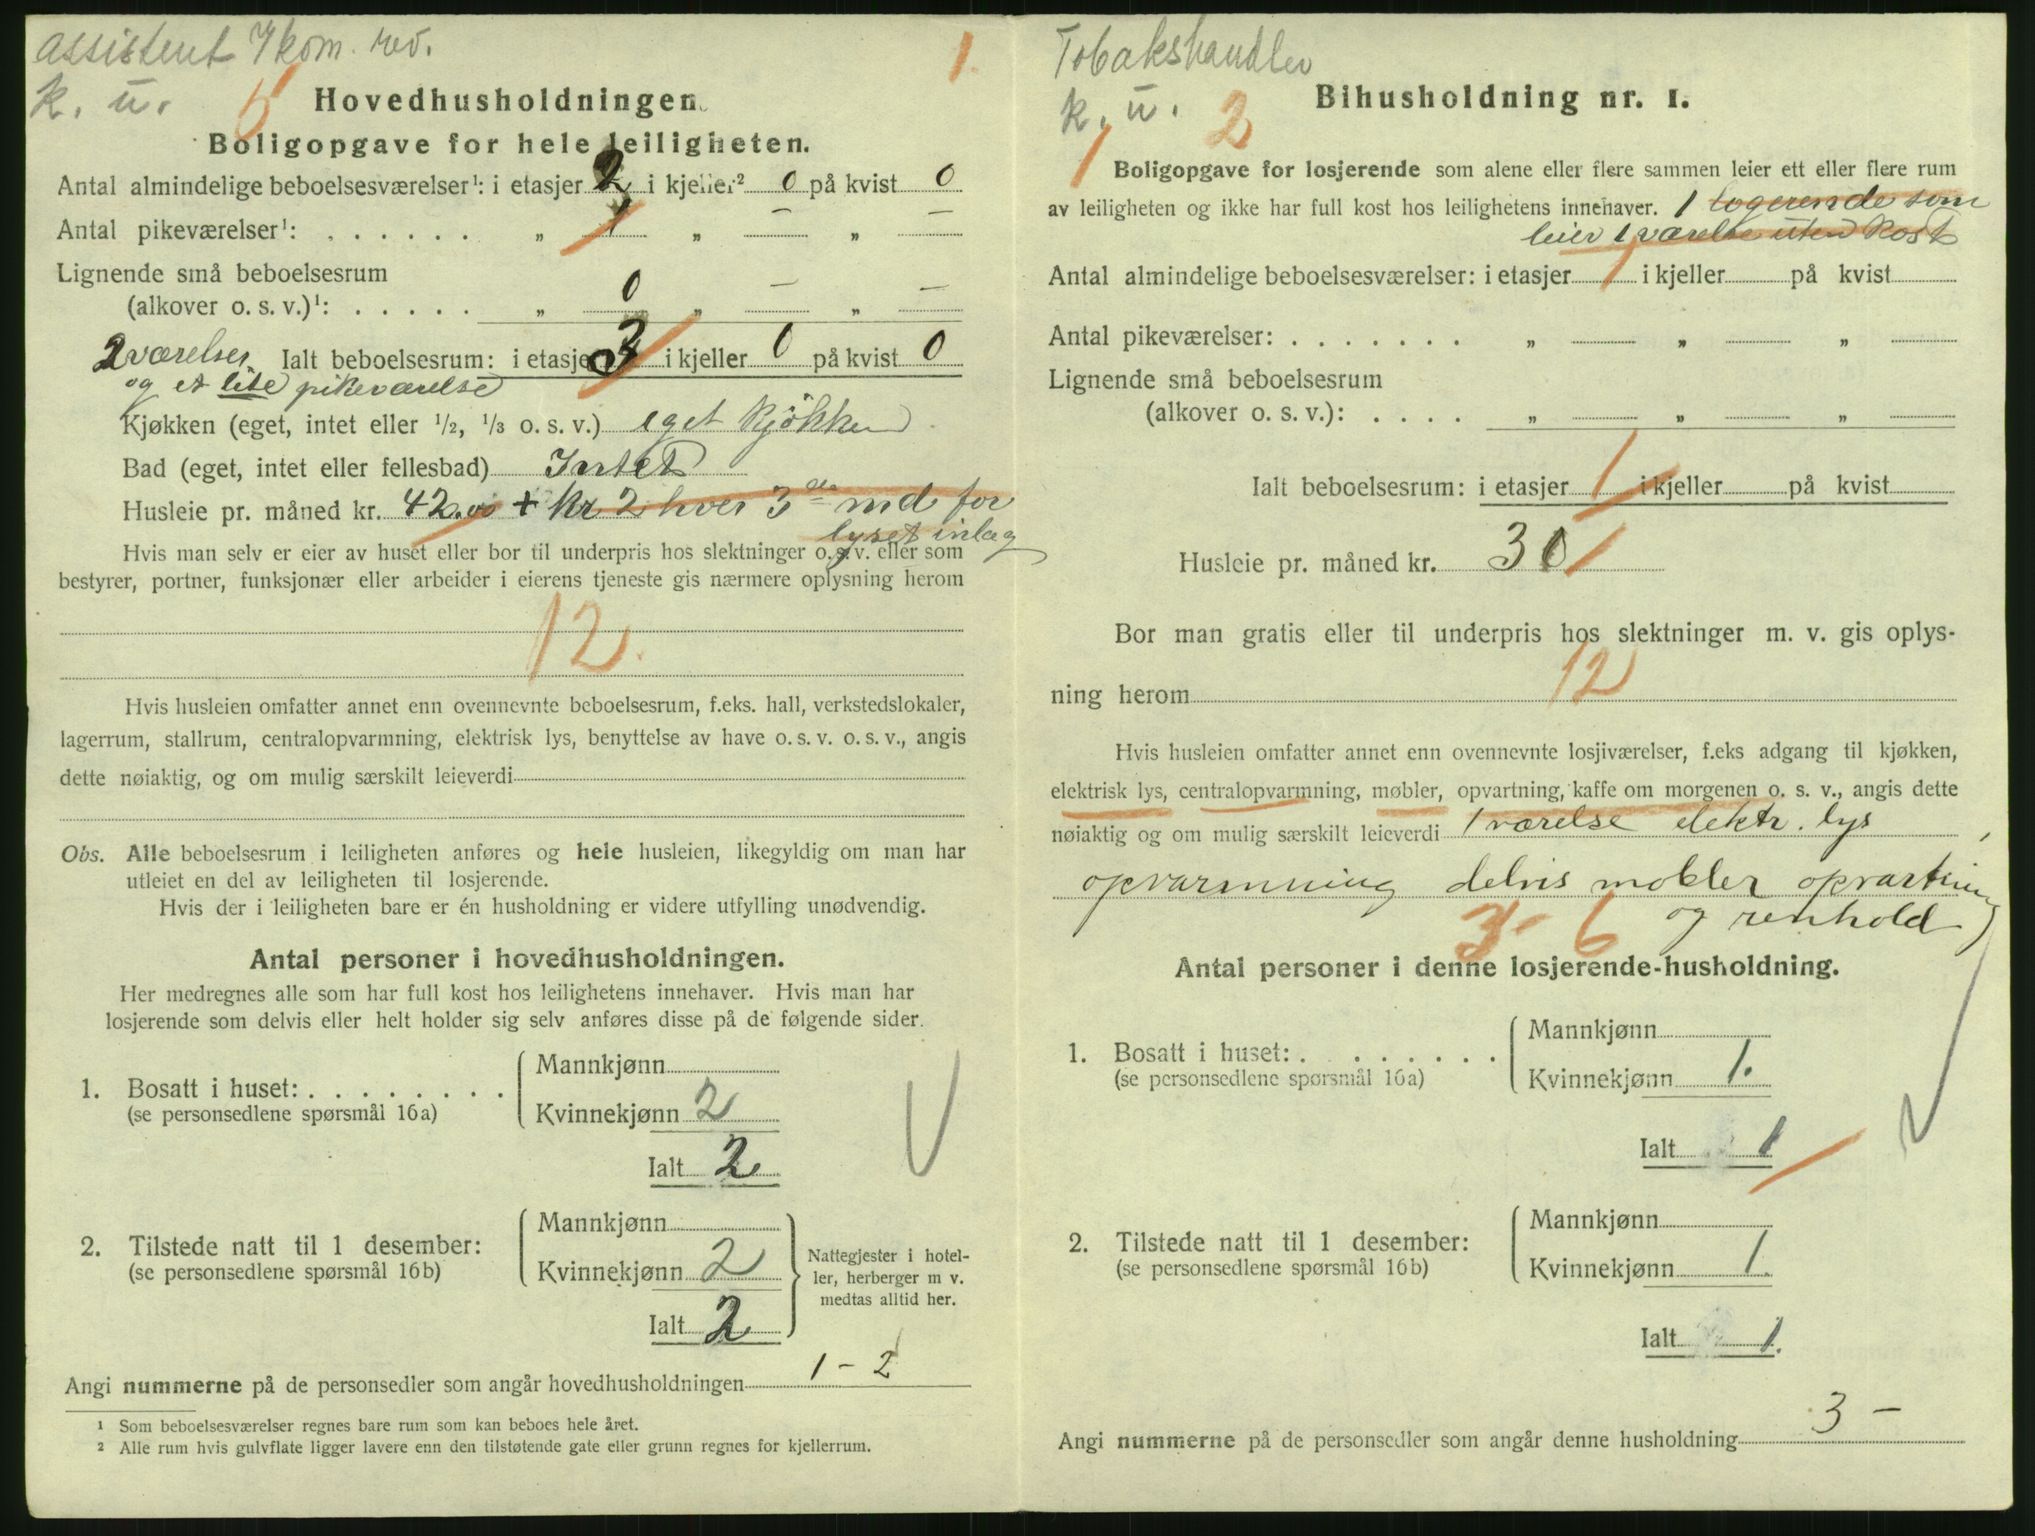 assistent I kom. rev.
1.
k. u.
5
Hovedhusholdningen.
Boligopgave for hele leiligheten.
Antal almindelige beboelsesværelser¹: i etasjer 2 i kjeller² 0 på kvist 0
Antal pikeværelser¹: . . . . . . „ 1 „ — „ —
Lignende små beboelsesrum
(alkover o. s. v.)¹: . . . . . „ 0 „ — „ —
2 værelser Ialt beboelsesrum: i etasjer 3 i kjeller 0 på kvist 0
og et lite pikeværelse
Kjøkken (eget, intet eller 1/2, 1/3 o. s. v.) eget kjøkken
Bad (eget, intet eller fellesbad) Intet
Husleie pr. måned kr. 42.00 + kr 2 hver 3 die md for
lyset inlæg
Hvis man selv er eier av huset eller bor til underpris hos slektninger o. s. v. eller som
bestyrer, portner, funksjonær eller arbeider i eierens tjeneste gis nærmere oplysning herom
12.
Hvis husleien omfatter annet enn ovennevnte beboelsesrum, f.eks. hall, verkstedslokaler,
lagerrum, stallrum, centralopvarmning, elektrisk lys, benyttelse av have o. s. v. o. s. v., angis
dette nøiaktig, og om mulig særskilt leieverdi
Obs. Alle beboelsesrum i leiligheten anføres og hele husleien, likegyldig om man har
utleiet en del av leiligheten til losjerende.
Hvis der i leiligheten bare er én husholdning er videre utfylling unødvendig.
Antal personer i hovedhusholdningen.
Her medregnes alle som har full kost hos leilighetens innehaver. Hvis man har
losjerende som delvis eller helt holder sig selv anføres disse på de følgende sider.
Mannkjønn
1. Bosatt i huset: . . . . . . . .
(se personsedlene spørsmål 16a)
Kvinnekjønn 2
Ialt 2
Mannkjønn
2. Tilstede natt til 1 desember:
(se personsedlene spørsmål 16b)
Kvinnekjønn 2
Nattegjester i hotel-
ler, herberger m v.
medtas alltid her.
Ialt 2
Angi nummerne på de personsedler som angår hovedhusholdningen 1 – 2
¹ Som beboelsesværelser regnes bare rum som kan beboes hele året.
² Alle rum hvis gulvflate ligger lavere enn den tilstøtende gate eller grunn regnes for kjellerrum.
Tobakshandler
k. u.
1 2
Bihusholdning nr. 1.
Boligopgave for losjerende som alene eller flere sammen leier ett eller flere rum
av leiligheten og ikke har full kost hos leilighetens innehaver. 1 logerende som
leier 1 værelse uten kost
Antal almindelige beboelsesværelser: i etasjer 1 i kjeller på kvist
Antal pikeværelser: . . . . . . . „ „ „
Lignende små beboelsesrum
(alkover o. s. v.): . . . . „ „ „
Ialt beboelsesrum: i etasjer 1 i kjeller på kvist
Husleie pr. måned kr. 30
Bor man gratis eller til underpris hos slektninger m. v. gis oplys-
12
ning herom
Hvis husleien omfatter annet enn ovennevnte losjiværelser, f.eks adgang til kjøkken,
elektrisk lys, centralopvarmning, møbler, opvartning, kaffe om morgenen o. s. v., angis dette
nøiaktig og om mulig særskilt leieverdi 1 værelse elektr. lys
opvarmning delvis møbler opvartning
3 - 6 og renhold
Antal personer i denne losjerende-husholdning.
Mannkjønn
1. Bosatt i huset: . . . . . . . .
(se personsedlene spørsmål 16a)
Kvinnekjønn 1.
Ialt 1
Mannkjønn
2. Tilstede natt til 1 desember:
(se personsedlene spørsmål 16b)
Kvinnekjønn 1.
Ialt 1.
Angi nummerne på de personsedler som angår denne husholdning 3 –